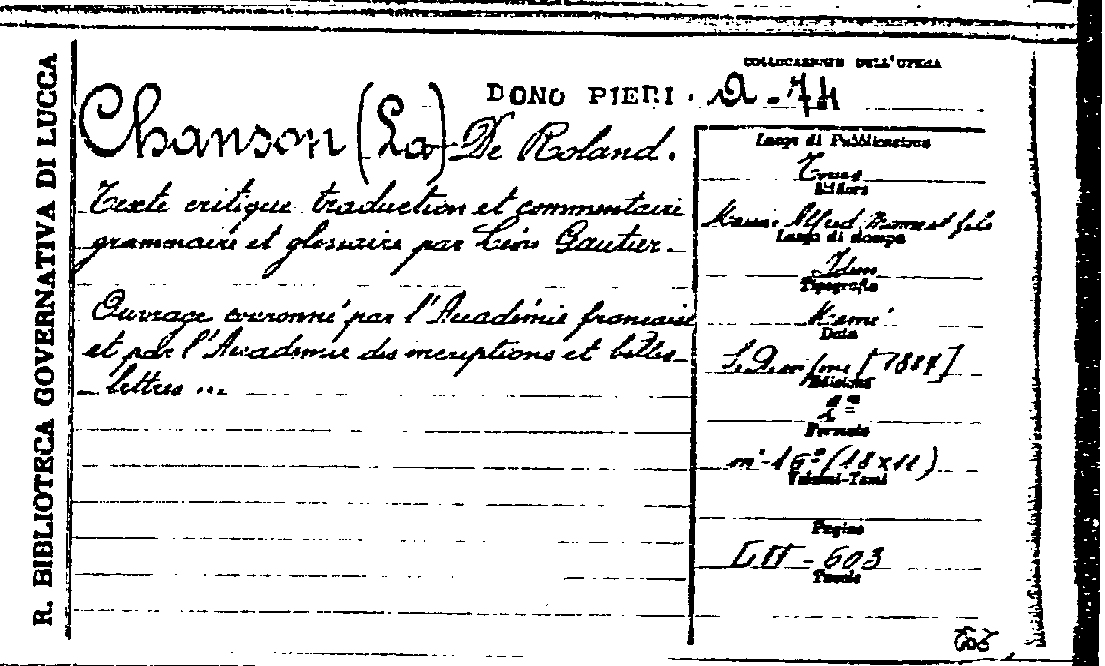 R. BIBLIOTECA GOVERNATIVA DI LUCCA
COLLOCAZIONE DELL'OPERA
DONO PIERI. A - 74
Chanson (La) De Roland.
Texte critique traduction et commentaire
grammaire et glossaire par Léon Gautier.
Ouvrage couronné par l'Académie française
et par l'Academie des incriptions et belles-
lettres ...
Luogo di Pubblicazione
Tours
Editore
Alfred Mame et fils
Luogo di stampa
Idem
Tipografia
Mame
Data
[1884]
Edizione
Formato
in-16º (18x11)
Volumi-Tomi
Pagine
LII - 603
Tavole